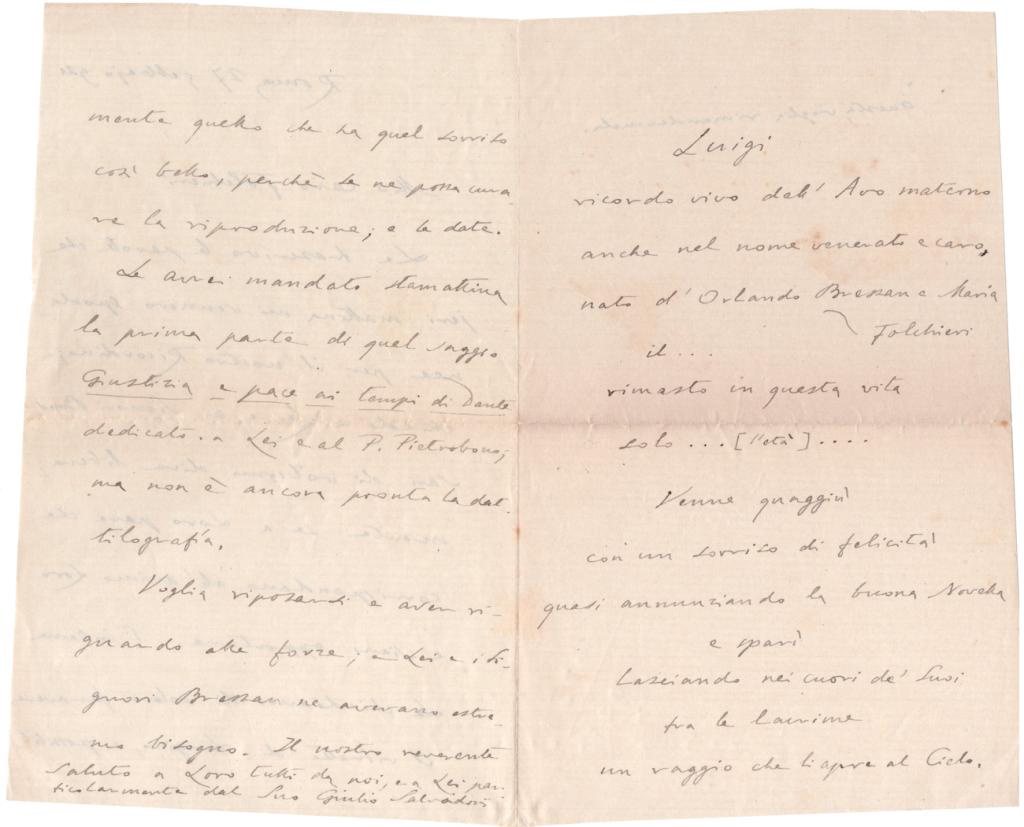 mente quello che ha quel sorriso
così bello, perchè se ne possa cura
re la riproduzione; e le date.
Le avrei mandato stamattina
la prima parte di quel saggio
Giustizia e pace ai tempi di Dante
dedicato a Lei e al P. Pietrobono;
ma non è ancora pronta la dat-
tilografia.
Voglia riposarsi e aver ri-
guardo alle forze; e Lei e i Si-
gnori Bressan ne avevano estre-
mo bisogno. Il nostro reverente
saluto a Loro tutti da noi, e a Lei par-
ticolarmente dal Suo Giulio Salvadori
Luigi
ricordo vivo dell' Avo materno
anche nel nome venerato e caro,
nato d' Orlando Bressan e Maria
Folchieri
il ...
rimasto in questa vita
solo ... [l'età] ....
Venne quaggiù
con un sorriso di felicità
quasi annunziando la buona Novella
e sparì
lasciando nei cuori de' Suoi
fra le lacrime
un raggio che li apre al Cielo.